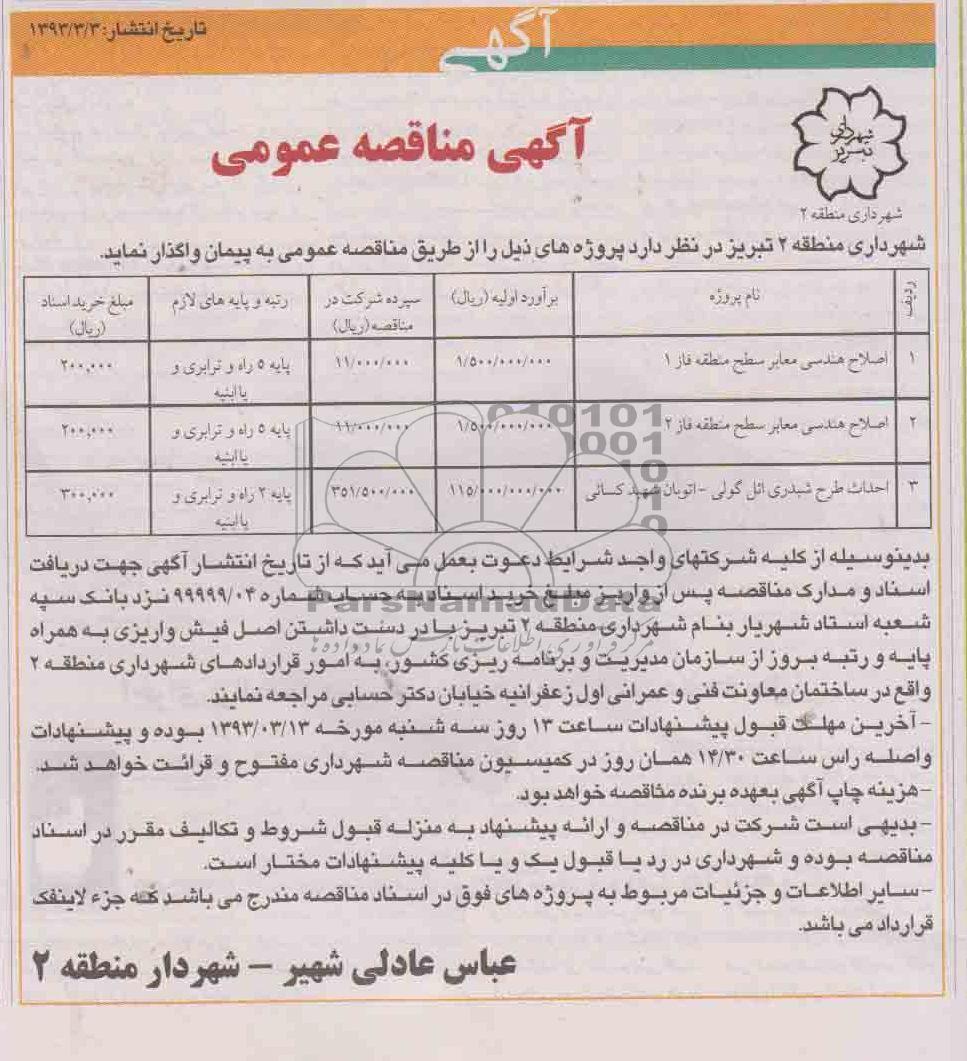 تاریخ انتشار: ۱۳۹۳/۳/۳
آگهی
شهرداری تبریز
شهرداری منطقه ۲
آگهی مناقصه عمومی
شهرداری منطقه ۲ تبریز در نظر دارد پروژه های ذیل را از طریق مناقصه عمومی به پیمان واگذار نماید.
ردیف | نام پروژه | برآورد اولیه (ریال) | سپرده شرکت در مناقصه (ریال) | رتبه و پایه های لازم | مبلغ خرید اسناد (ریال)
۱ | اصلاح هندسی معابر سطح منطقه فاز ۱ | ۱/۵۰۰/۰۰۰/۰۰۰ | ۱۱/۰۰۰/۰۰۰ | پایه ۵ راه و ترابری و یا ابنیه | ۲۰۰,۰۰۰
۲ | اصلاح هندسی معابر سطح منطقه فاز ۲ | ۱/۵۰۰/۰۰۰/۰۰۰ | ۱۱/۰۰۰/۰۰۰ | پایه ۵ راه و ترابری و یا ابنیه | ۲۰۰,۰۰۰
۳ | احداث طرح شبدری ائل گولی - اتوبان شهید کسائی | ۱۱۵/۰۰۰/۰۰۰/۰۰۰ | ۳۵۱/۵۰۰/۰۰۰ | پایه ۲ راه و ترابری و یا ابنیه | ۳۰۰,۰۰۰
بدینوسیله از کلیه شرکتهای واجد شرایط دعوت بعمل می آید که از تاریخ انتشار آگهی جهت دریافت
اسناد و مدارک مناقصه پس از واریز مبلغ خرید اسناد به حساب شماره ۹۹۹۹۹/۰۴ نزد بانک سپه
شعبه استاد شهریار بنام شهرداری منطقه ۲ تبریز با در دست داشتن اصل فیش واریزی به همراه
پایه و رتبه بروز از سازمان مدیریت و برنامه ریزی کشور، به امور قراردادهای شهرداری منطقه ۲
واقع در ساختمان معاونت فنی و عمرانی اول زعفرانیه خیابان دکتر حسابی مراجعه نمایند.
- آخرین مهلت قبول پیشنهادات ساعت ۱۳ روز سه شنبه مورخه ۱۳۹۳/۰۳/۱۳ بوده و پیشنهادات
واصله راس ساعت ۱۴/۳۰ همان روز در کمیسیون مناقصه شهرداری مفتوح و قرائت خواهد شد.
- هزینه چاپ آگهی بعهده برنده مناقصه خواهد بود.
- بدیهی است شرکت در مناقصه و ارائه پیشنهاد به منزله قبول شروط و تکالیف مقرر در اسناد
مناقصه بوده و شهرداری در رد یا قبول یک و یا کلیه پیشنهادات مختار است.
- سایر اطلاعات و جزئیات مربوط به پروژه های فوق در اسناد مناقصه مندرج می باشد که جزء لاینفک
قرارداد می باشد.
عباس عادلی شهیر - شهردار منطقه ۲
ParsNamadData